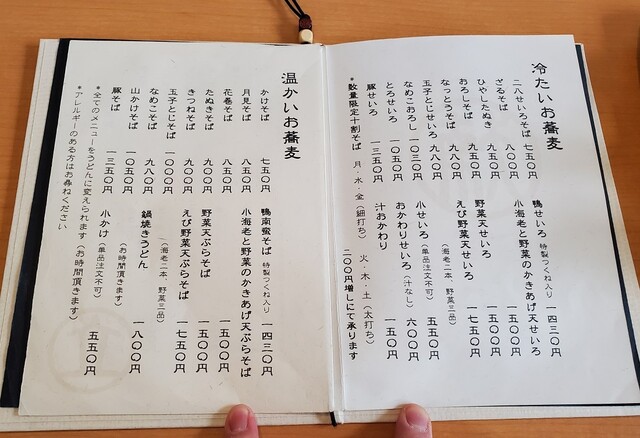 冷たいお蕎麦
二八せいろそば 七五〇円
ざるそば 八〇〇円
ひやしたぬき 九五〇円
おろしそば 九五〇円
なっとうそば 九八〇円
玉子とじせいろ 九八〇円
なめこおろし 一〇三〇円
とろせいろ 一〇五〇円
豚せいろ 一三五〇円
鴨せいろ 特製つくね入り 一四三〇円
小海老と野菜のかきあげ天せいろ 一五〇〇円
野菜天せいろ 一五〇〇円
えび野菜天せいろ 一七五〇円
(海老二本、野菜三品)
小せいろ(単品注文不可) 五五〇円
おかわりせいろ(汁なし) 六〇〇円
汁おかわり 一五〇円
*数量限定十割そば 月・水・金(細打ち) 火・木・土(太打ち)
二〇〇円増しにて承ります
温かいお蕎麦
かけそば 七五〇円
月見そば 八五〇円
花巻そば 八五〇円
たぬきそば 九〇〇円
きつねそば 九〇〇円
玉子とじそば 一〇〇〇円
なめこそば 九八〇円
山かけそば 一〇五〇円
豚そば 一三五〇円
鴨南蛮そば 特製つくね入り 一四三〇円
小海老と野菜のかきあげ天ぷらそば 一五〇〇円
野菜天ぷらそば 一五〇〇円
えび野菜天ぷらそば 一七五〇円
(海老二本、野菜三品)
鍋焼きうどん 一八〇〇円
(お時間頂きます)
小かけ(単品注文不可) 五五〇円
*全てのメニューをうどんに変えられます(お時間頂きます)
*アレルギーのある方はお尋ねください